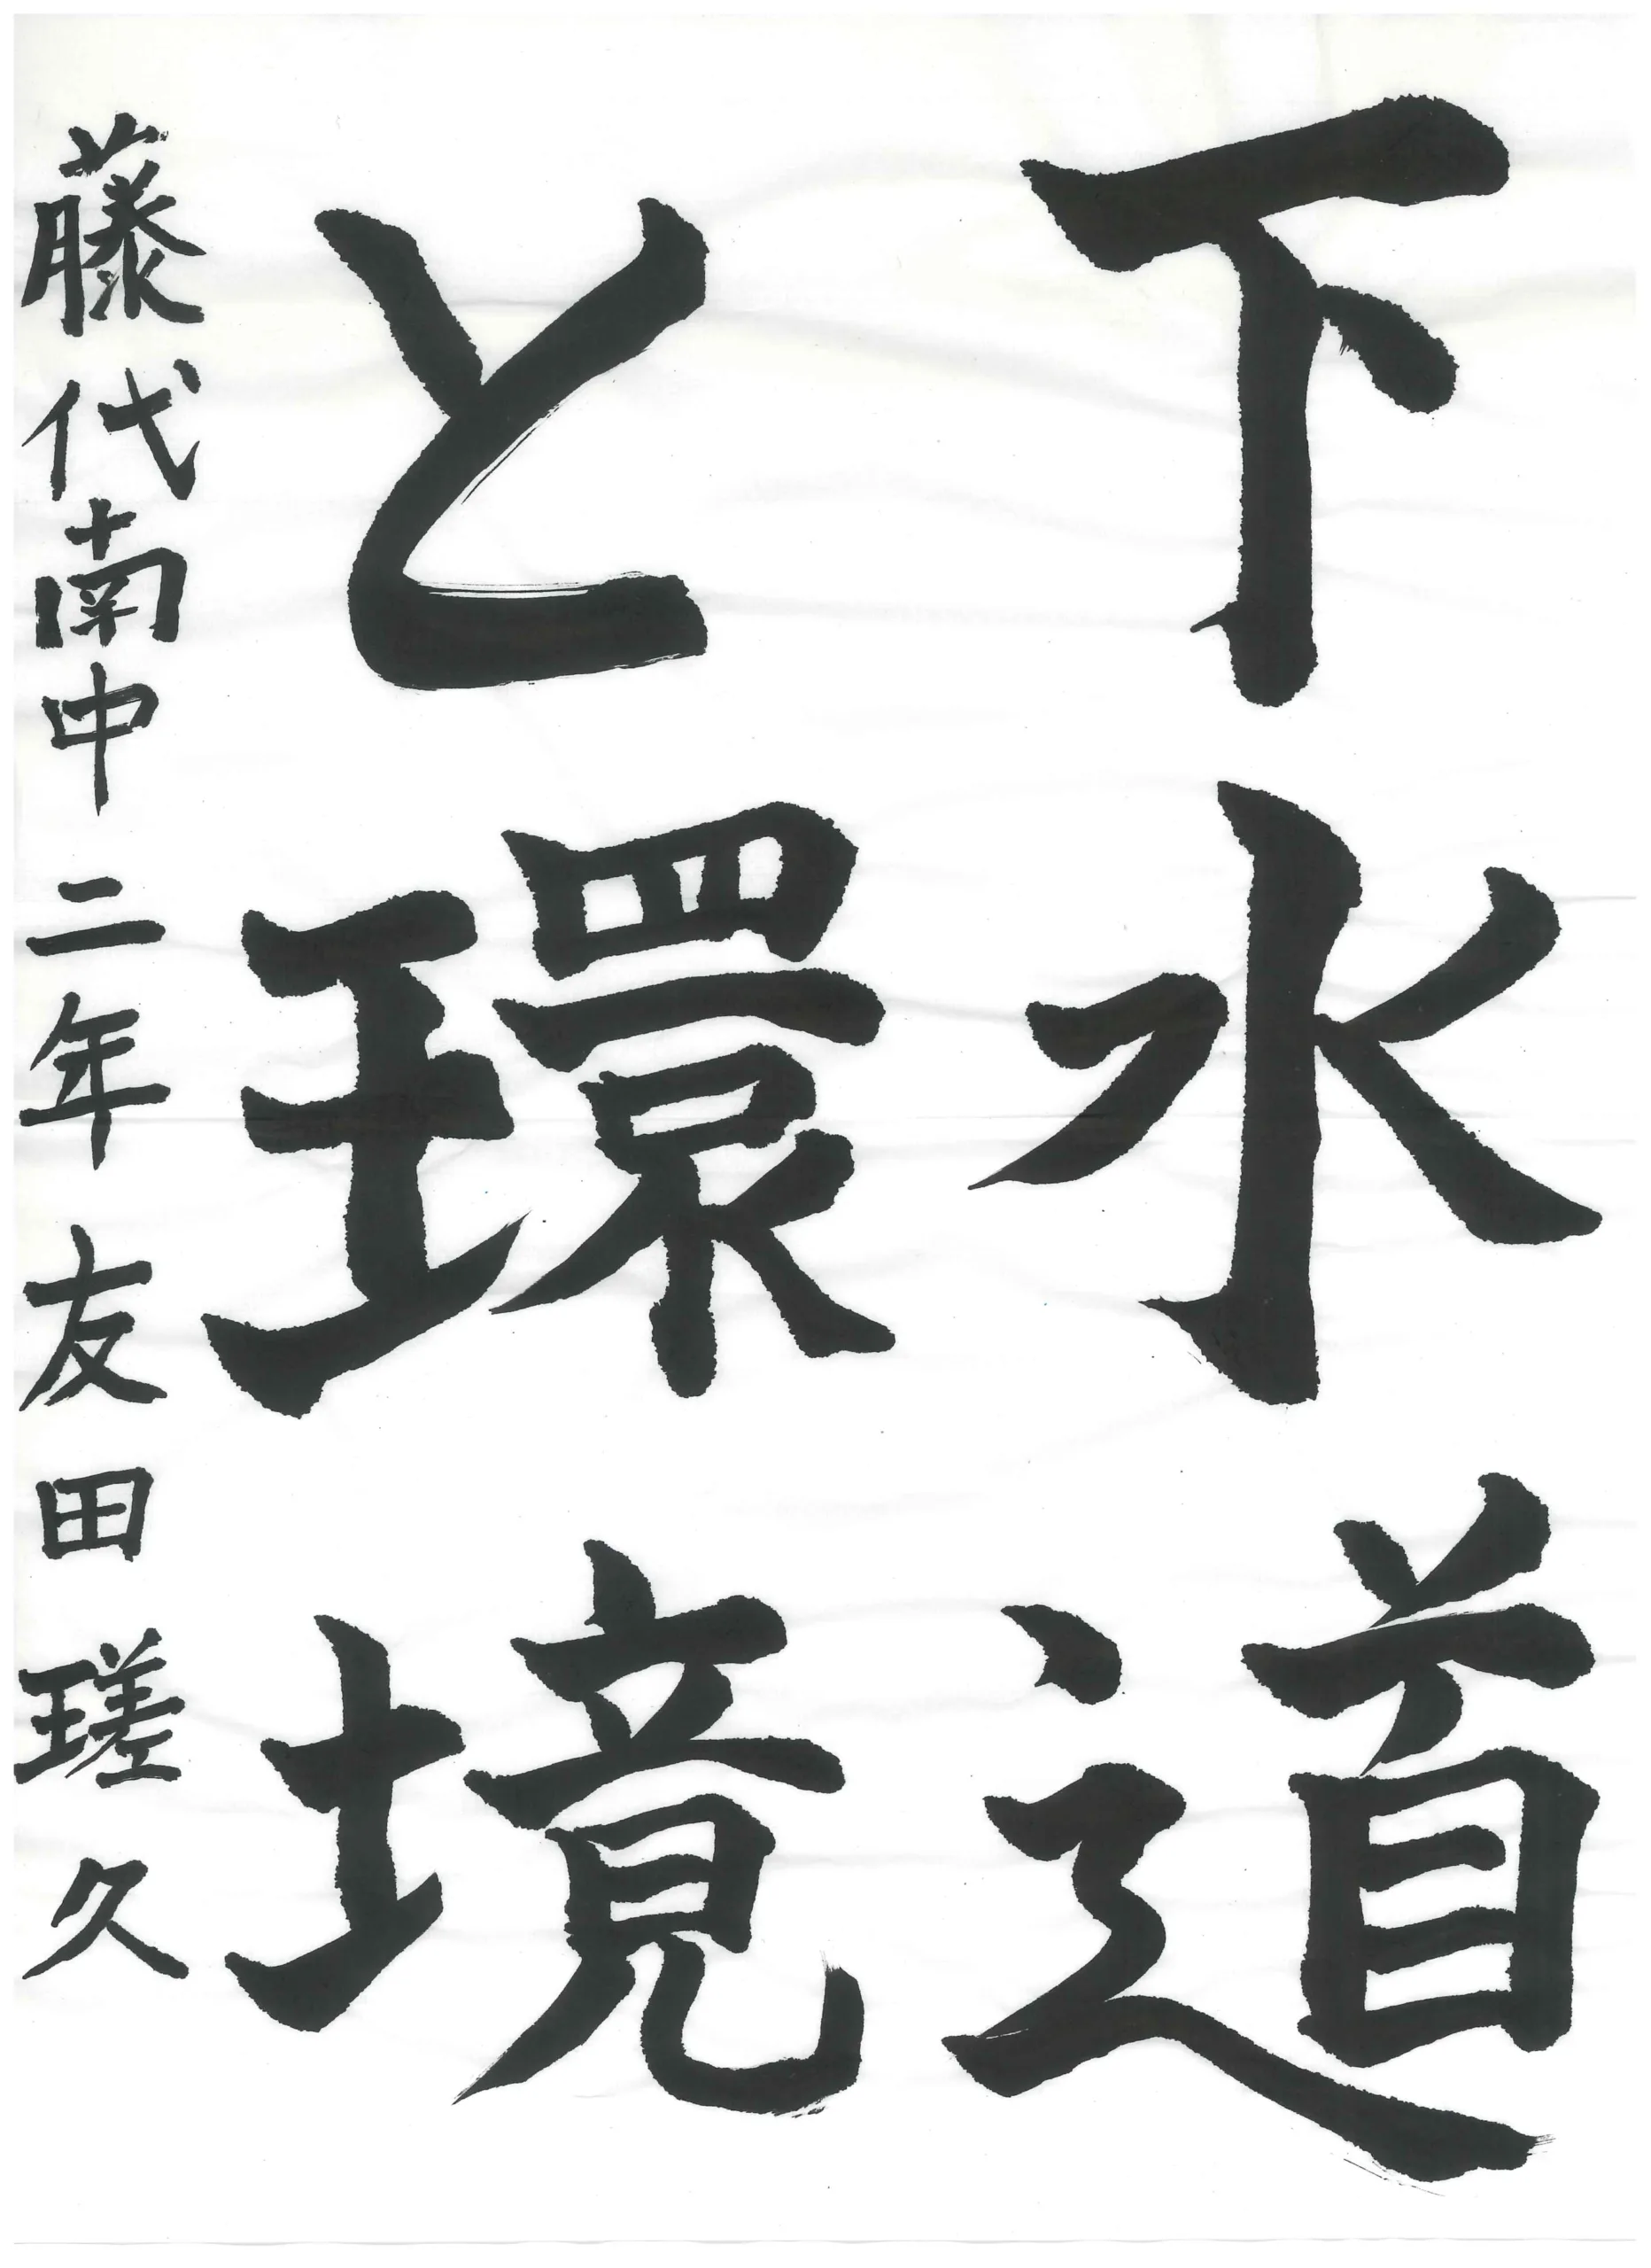 下水道
と環境
藤代南中 二年 友田 瑳久